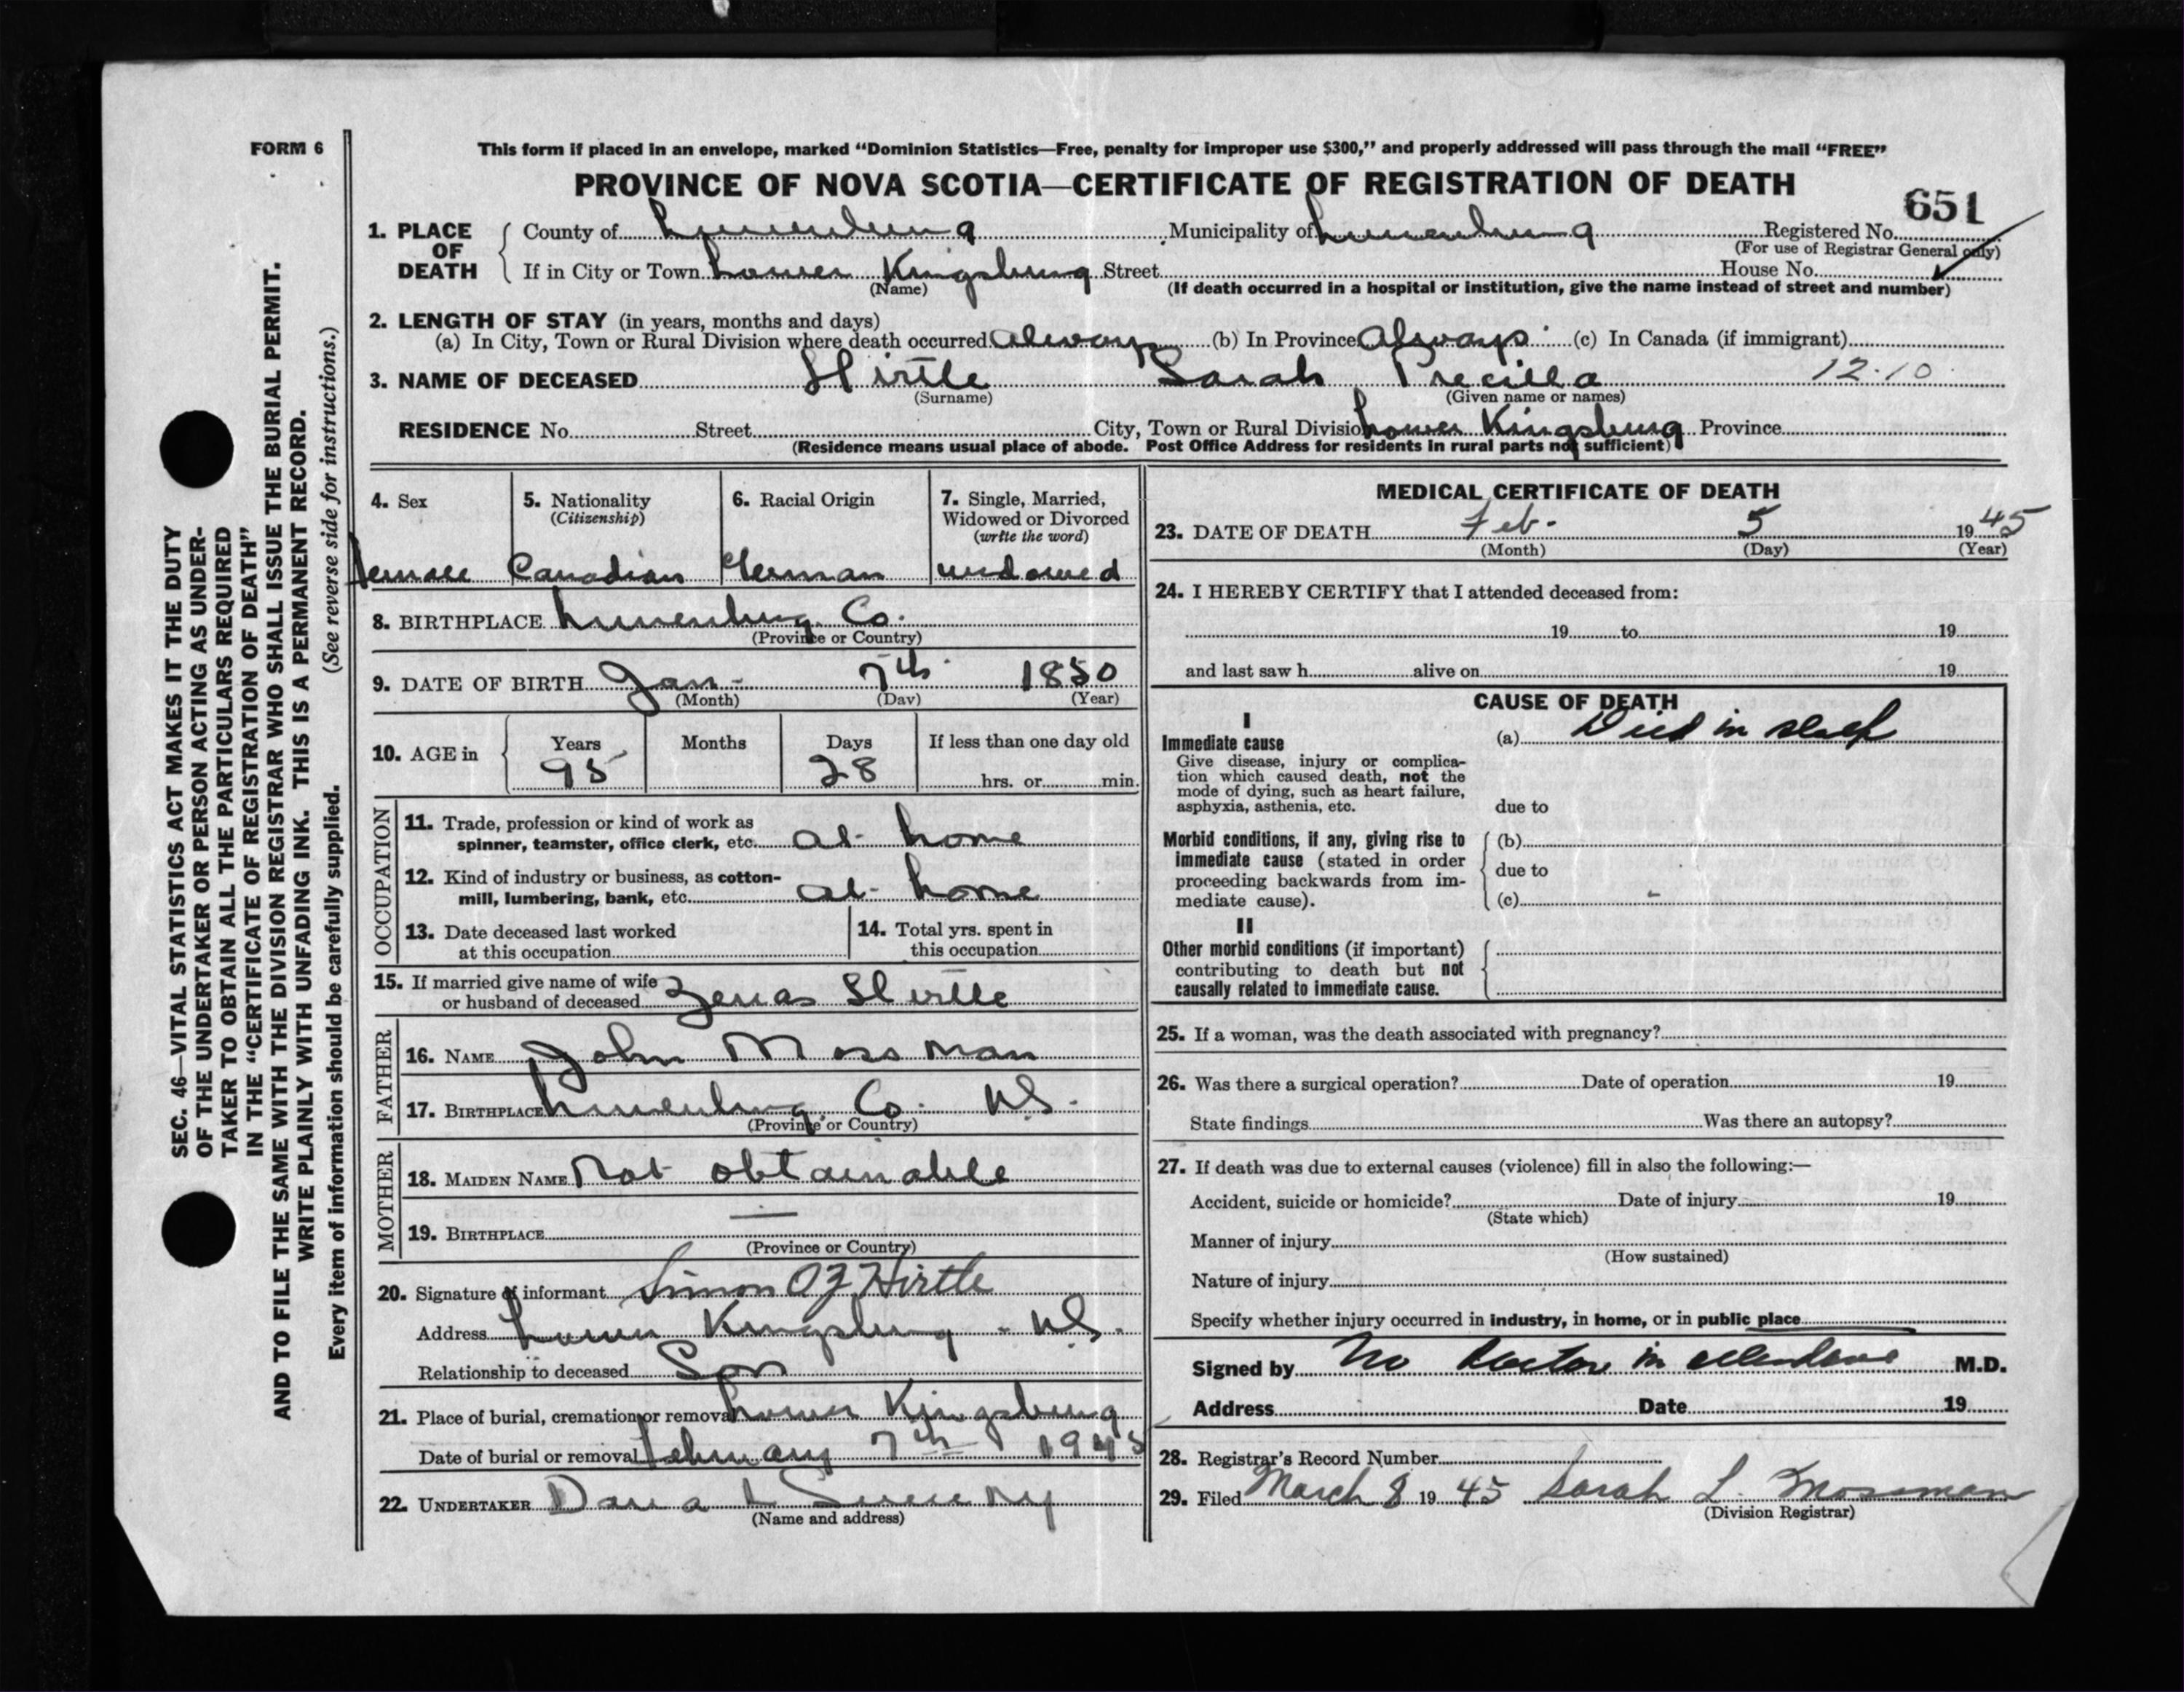 FORM 6
This form if placed in an envelope, marked “Dominion Statistics—Free, penalty for improper use $300,” and properly addressed will pass through the mail “FREE”
PROVINCE OF NOVA SCOTIA—CERTIFICATE OF REGISTRATION OF DEATH
651
1. PLACE OF DEATH
County of Lunenburg Municipality of Lunenburg Registered No.
(For use of Registrar General only)
If in City or Town Lower Kingsburg Street House No.
(Name) (If death occurred in a hospital or institution, give the name instead of street and number)
2. LENGTH OF STAY (in years, months and days)
(a) In City, Town or Rural Division where death occurred always (b) In Province Always (c) In Canada (if immigrant)
3. NAME OF DECEASED Hirtle Sarah Precilla 12.10
(Surname) (Given name or names)
RESIDENCE No. Street City, Town or Rural Division Lower Kingsburg Province
(Residence means usual place of abode. Post Office Address for residents in rural parts not sufficient)
4. Sex
female
5. Nationality
(Citizenship)
Canadian
6. Racial Origin
German
7. Single, Married,
Widowed or Divorced
(write the word)
widowed
8. BIRTHPLACE Lunenburg Co.
(Province or Country)
9. DATE OF BIRTH Jan- 7th 1850
(Month) (Day) (Year)
10. AGE in
Years Months Days If less than one day old
95 28 hrs. or min.
OCCUPATION
11. Trade, profession or kind of work as
spinner, teamster, office clerk, etc. at home
12. Kind of industry or business, as cotton-
mill, lumbering, bank, etc. at home
13. Date deceased last worked
at this occupation
14. Total yrs. spent in
this occupation
15. If married give name of wife
or husband of deceased Zenas Hirtle
FATHER
16. NAME John Mossman
17. BIRTHPLACE Lunenburg Co. N.S.
(Province or Country)
MOTHER
18. MAIDEN NAME Not obtainable
19. BIRTHPLACE —
(Province or Country)
20. Signature of informant Simon OZ Hirtle
Address Lower Kingsburg - N.S.
Relationship to deceased Son
21. Place of burial, cremation or removal Lower Kingsburg
Date of burial or removal February 7th 1945
22. UNDERTAKER
(Name and address)
MEDICAL CERTIFICATE OF DEATH
23. DATE OF DEATH Feb- 5 1945
(Month) (Day) (Year)
24. I HEREBY CERTIFY that I attended deceased from:
19 to 19
and last saw h alive on 19
CAUSE OF DEATH
I
Immediate cause
Give disease, injury or complica-
tion which caused death, not the
mode of dying, such as heart failure,
asphyxia, asthenia, etc.
(a) Died in sleep
due to
Morbid conditions, if any, giving rise to
immediate cause (stated in order
proceeding backwards from im-
mediate cause).
(b)
due to
(c) -
II
Other morbid conditions (if important)
contributing to death but not
causally related to immediate cause.
25. If a woman, was the death associated with pregnancy?
26. Was there a surgical operation? Date of operation 19
State findings Was there an autopsy?
27. If death was due to external causes (violence) fill in also the following:—
Accident, suicide or homicide? Date of injury 19
(State which)
Manner of injury
(How sustained)
Nature of injury
Specify whether injury occurred in industry, in home, or in public place
Signed by No doctor in attendance M.D.
Address Date 19
28. Registrar's Record Number
29. Filed March 8 1945 Sarah L. Mossman
(Division Registrar)
SEC. 46—VITAL STATISTICS ACT MAKES IT THE DUTY
OF THE UNDERTAKER OR PERSON ACTING AS UNDER-
TAKER TO OBTAIN ALL THE PARTICULARS REQUIRED
IN THE “CERTIFICATE OF REGISTRATION OF DEATH”
AND TO FILE THE SAME WITH THE DIVISION REGISTRAR WHO SHALL ISSUE THE BURIAL PERMIT.
WRITE PLAINLY WITH UNFADING INK. THIS IS A PERMANENT RECORD.
Every item of information should be carefully supplied. (See reverse side for instructions.)